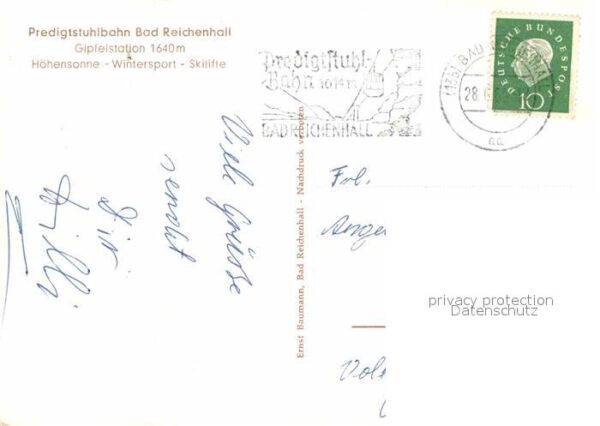 Predigtstuhlbahn Bad Reichenhall
Gipfelstation 1640 m
Höhensonne - Wintersport - Skilifte
Predigtstuhl-
Bahn 1614 m
BAD REICHENHALL
DEUTSCHE BUNDESPOST
10
(13b) BAD
28.
Viele Grüsse
sendet
Dir
Willi
Ernst Baumann, Bad Reichenhall - Nachdruck verboten
Frl.
privacy protection
Datenschutz